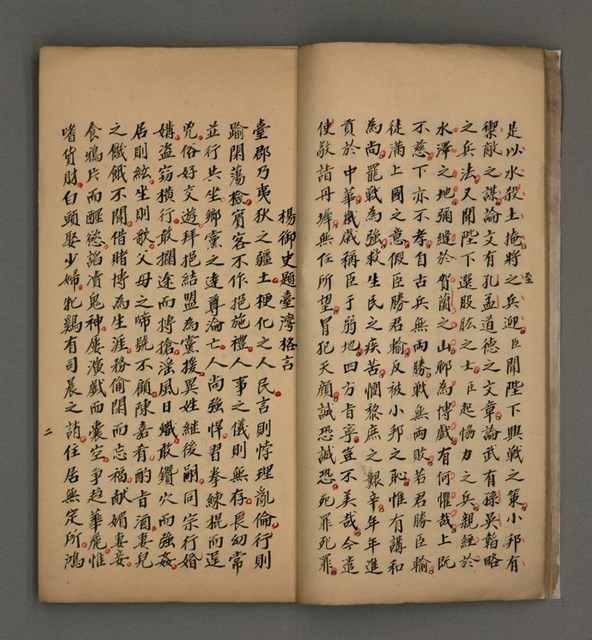 是以水殺土掩將之兵迎臣聞陛下興戰之策小邦有
禦敵之謀論文有孔孟道德之文章論武有孫吳韜略
之兵法又聞陛下選股肱之士臣起恊力之兵親經於
水澤之地彌縫於賀蘭之山聊為博戲有何懼哉上阮
不慈下亦不孝自古兵無兩勝戰無兩敗若君勝臣輸
徒滿上國之意假臣勝君輸反被小邦之恥惟有講和
為尚罷戰為強救生民之疾苦憫黎庶之艱辛年年進
貢於中華歲歲稱臣于弱地四方肯寧豈不美哉今遣
使敬詣丹墀無任所望冒犯天顏誠恐誠恐死罪死罪
楊御史題臺灣格言
臺郡乃夷狄之疆土梗化之人民言則悖理亂倫行則
踰閑蕩檢賓客不作挹施禮人事之儀則無存長幼常
並行共坐鄉黨之達尊淪亡人尚強悍習拳練棍而逞
兇俗好交遊拜把結盟為黨援異姓繼後嗣同宗行婚
媾盜竊橫行敢攔途而搏搶淫風日熾敢鑽穴而強姦
居則絃生則歌父母之啼號不顧陳嘉有酌旨酒妻兒
之饑餓不關借賭博為生涯務偷閑而忘福献媚妻妾
食鴉片而醒慾諂瀆鬼神屢演戲而囊空爭趋華麗惟
嗜貨財白頭娶少婦牝鷄有司晨之誚住居無定所鴻
二